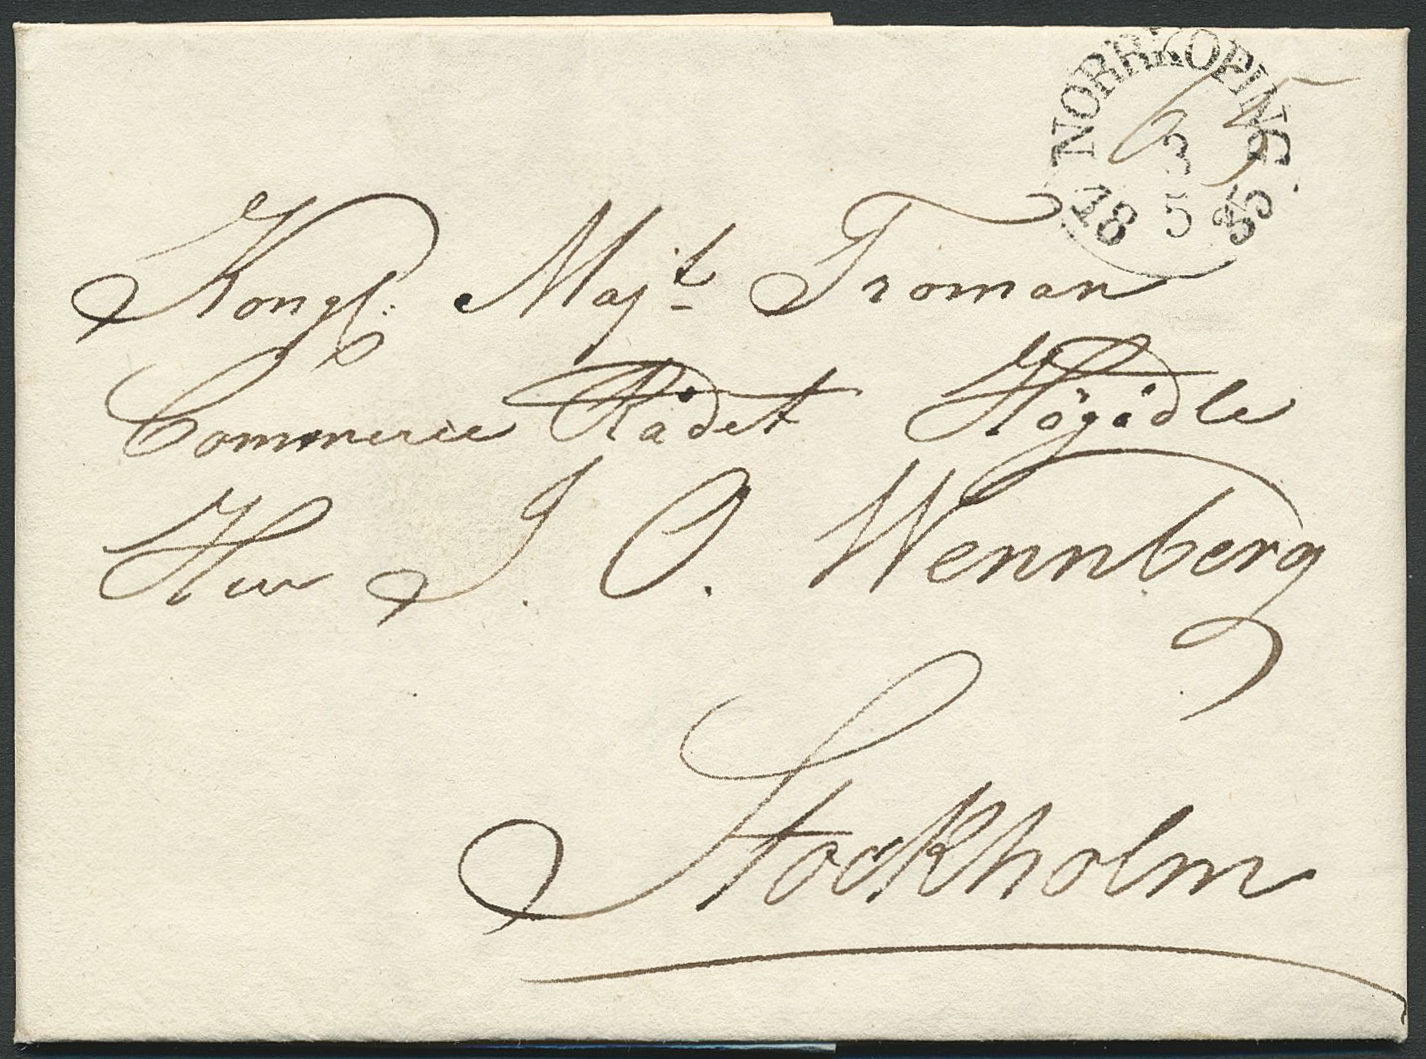 NORRKÖPING
65
3
5
1835
Kongl. Maj:t Troman
Commerce Rådet Högädle
Herr J. O. Wennberg
Stockholm